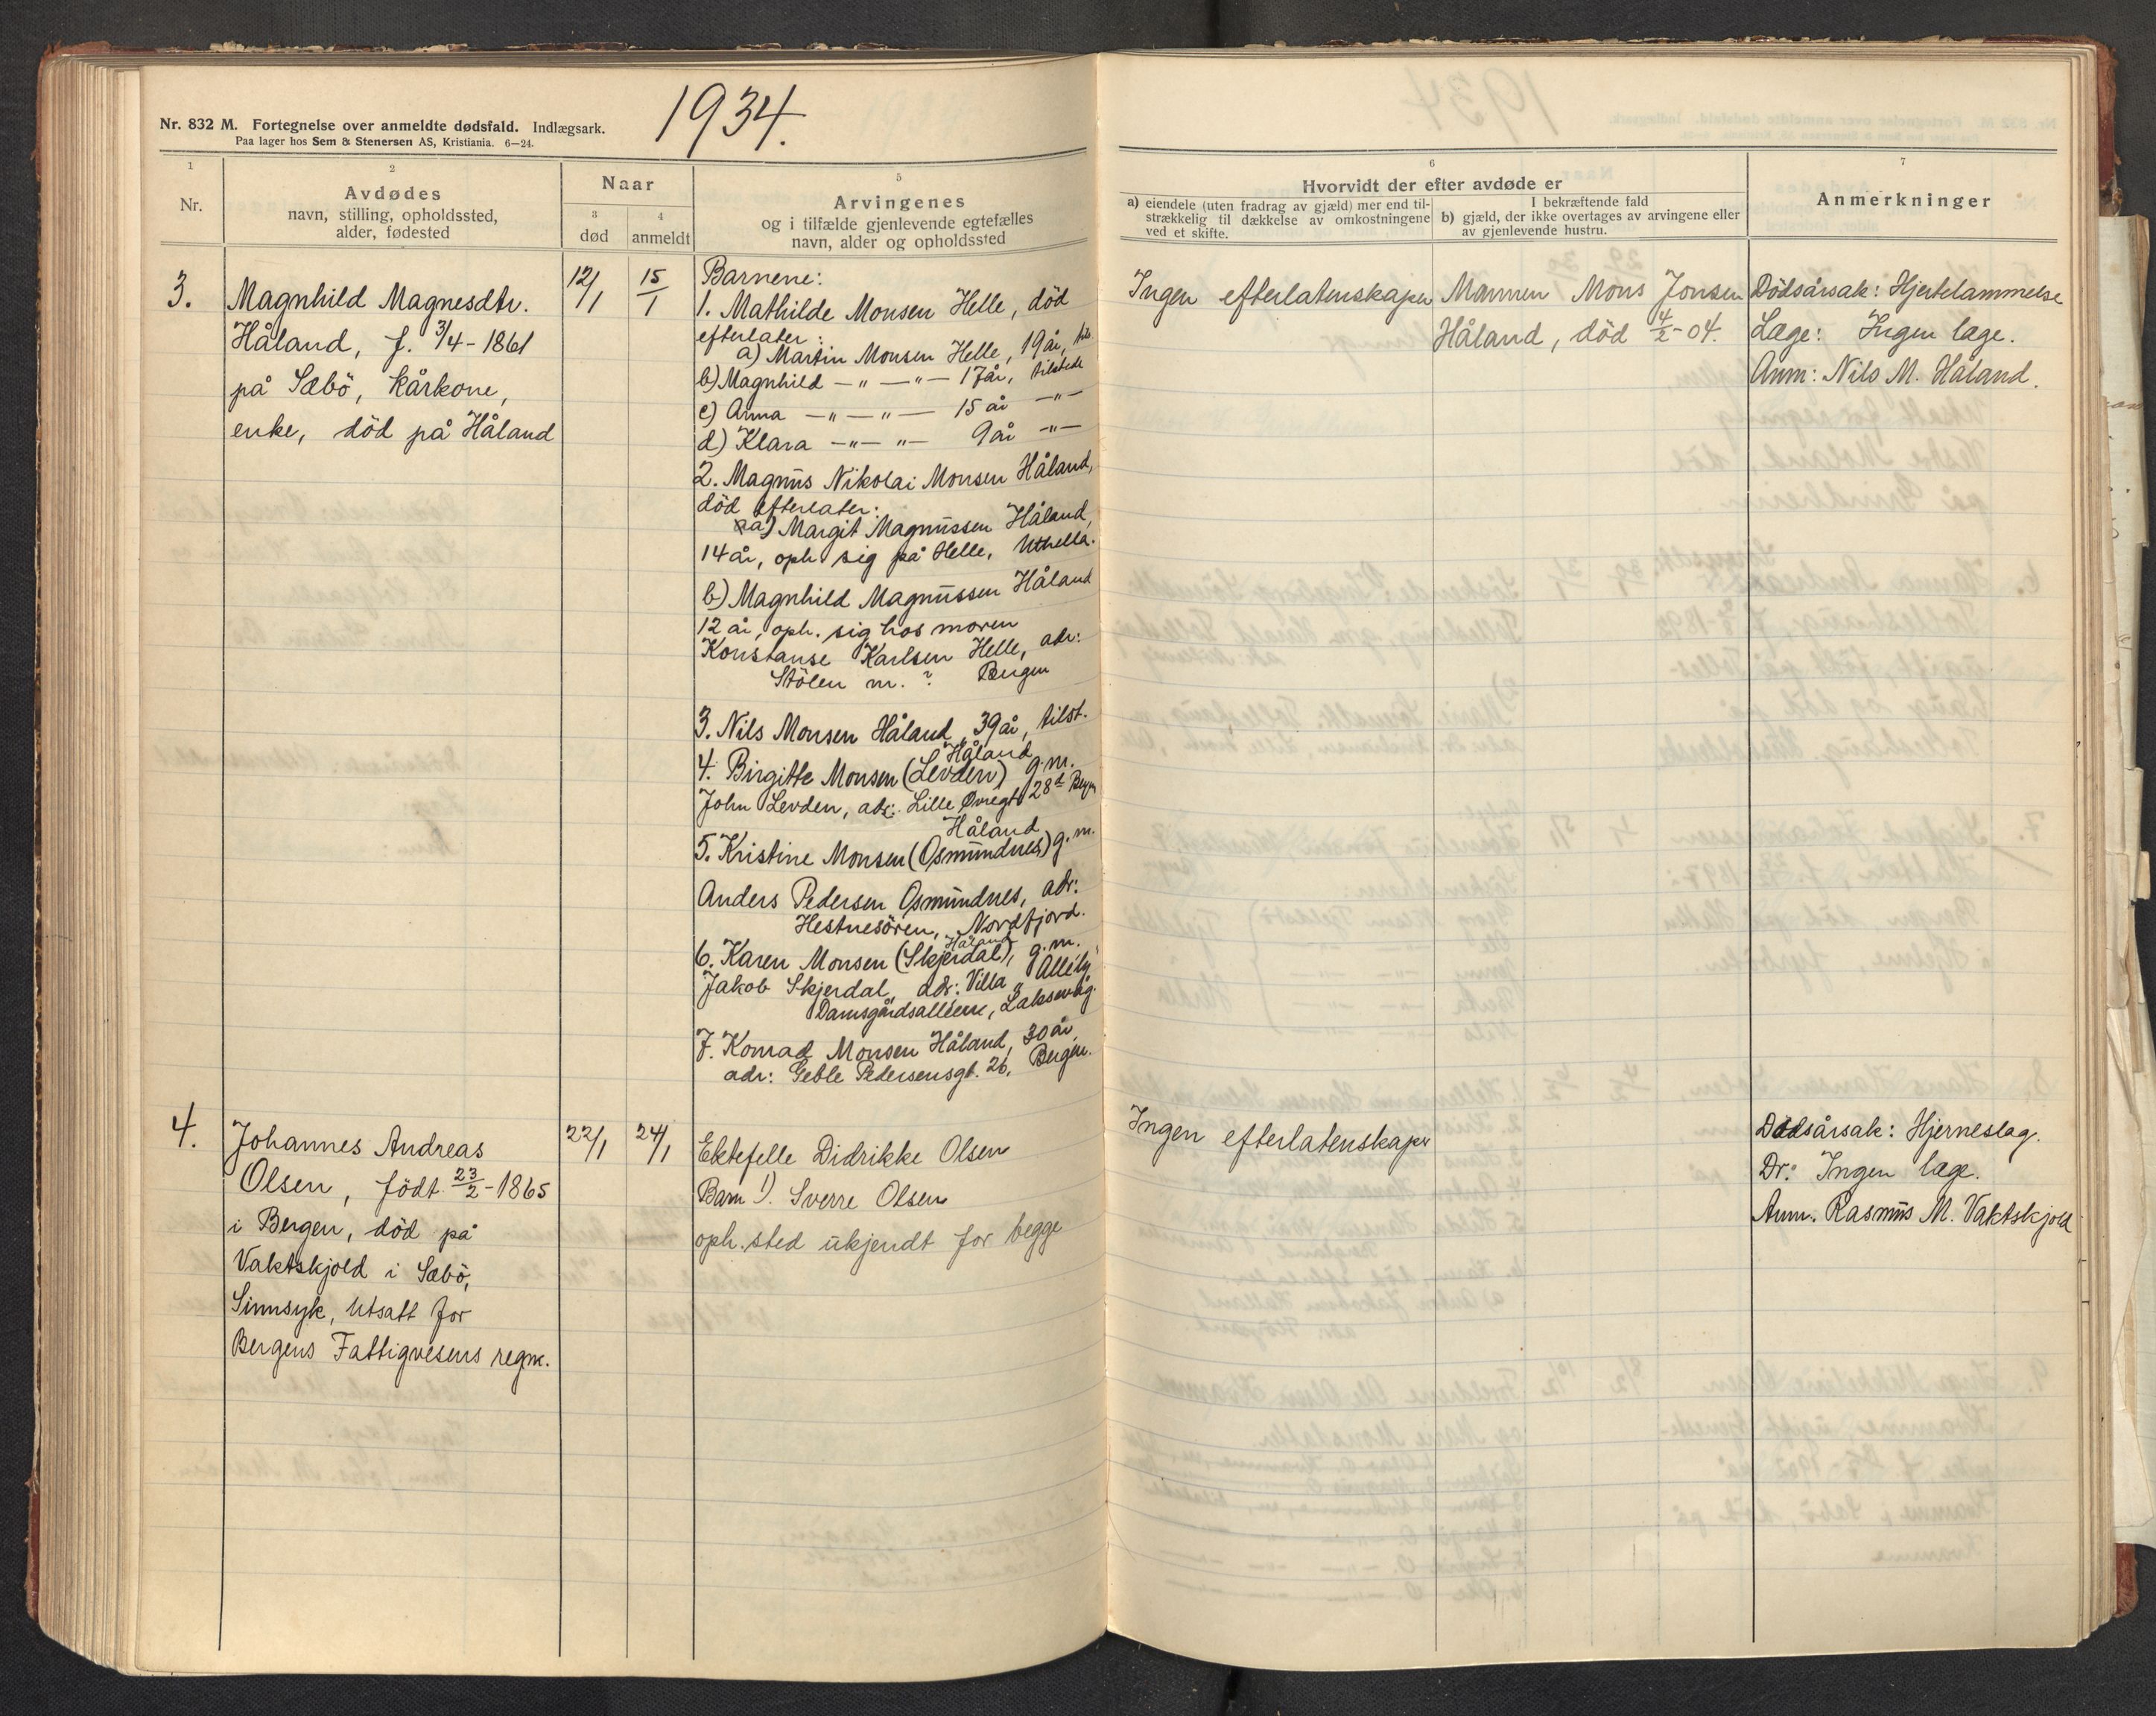 Nr. 832 M. Fortegnelse over anmeldte dødsfald. Indlægsark.
Paa lager hos Sem & Stenersen AS, Kristiania. 6—24.
1934.
1
Nr.
2
Avdødes
navn, stilling, opholdssted,
alder, fødested
Naar
3
død
4
anmeldt
5
Arvingenes
og i tilfælde gjenlevende egtefælles
navn, alder og opholdssted
6
Hvorvidt der efter avdøde er
a) eiendele (uten fradrag av gjæld) mer end til-
strækkelig til dækkelse av omkostningene
ved et skifte.
I bekræftende fald
b) gjæld, der ikke overtages av arvingene eller
av gjenlevende hustru.
7
Anmerkninger
3.
Magnhild Magnesdtr.
Håland, f. 3/4 - 1861
på Sæbö, kårkone,
enke, död på Håland
12/1
15/1
Barnene:
1. Mathilde Monsen Helle, död
efterlater:
a) Martin Monsen Helle, 19 år, tils.
b) Magnhild —"— —"— 17 år, tilstede
c) Anna —"— —"— 15 år —"—
d) Klara —"— "— 9 år —"—
2. Magnus Nikolai Monsen Håland,
död efterlater:
a) Margit Magnussen Håland,
14 år, oph sig på Helle, Uthella.
b) Magnhild Magnussen Håland
12 år, oph. sig hos moren
Konstanse Karlsen Helle, adr:
Stölen nr. ? Bergen
3. Nils Monsen Håland, 39 år, tilst.
Håland
4. Birgitte Monsen (Levden) g.m.
John Levden, adr: Lille Øvregt 28 d Bergn
Håland
5. Kristine Monsen (Osmundnes) g.m.
Anders Pedersen Osmundnes, adr:
Hestnesören, Nordfjord.
Håland
6. Karen Monsen (Skjerdal), g.m.
Jakob Skjerdal, adr: Villa "Allély"
Damsgårdsalléen, Laksevåg.
7. Konrad Monsen Håland, 30 år,
adr: Geble Pedersensgt. 26, Bergen.
Ingen efterlatenskaper
Mannen Mons Jonsen
Håland, död 4/2 - 04.
Dödsårsak: Hjertelammelse
Læge: Ingen læge.
Anm: Nils M. Håland.
4.
Johannes Andreas
Olsen, födt 23/2 - 1865
i Bergen, död på
Vaktskjold i Sæbö,
Sinnsyk, utsatt for
Bergens Fattigvesens regn.
22/1
24/1
Ektefelle Didrikke Olsen
Barn 1). Sverre Olsen
oph.sted ukjendt for begge
Ingen efterlatenskaper
Dödsårsak: Hjerneslag.
Dr: Ingen læge.
Anm. Rasmus M. Vaktskjold